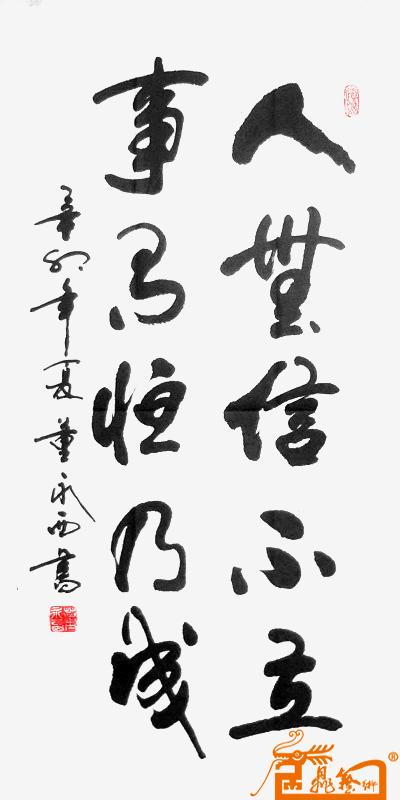 人無信不立
事有恒乃成
辛卯年夏董永西書